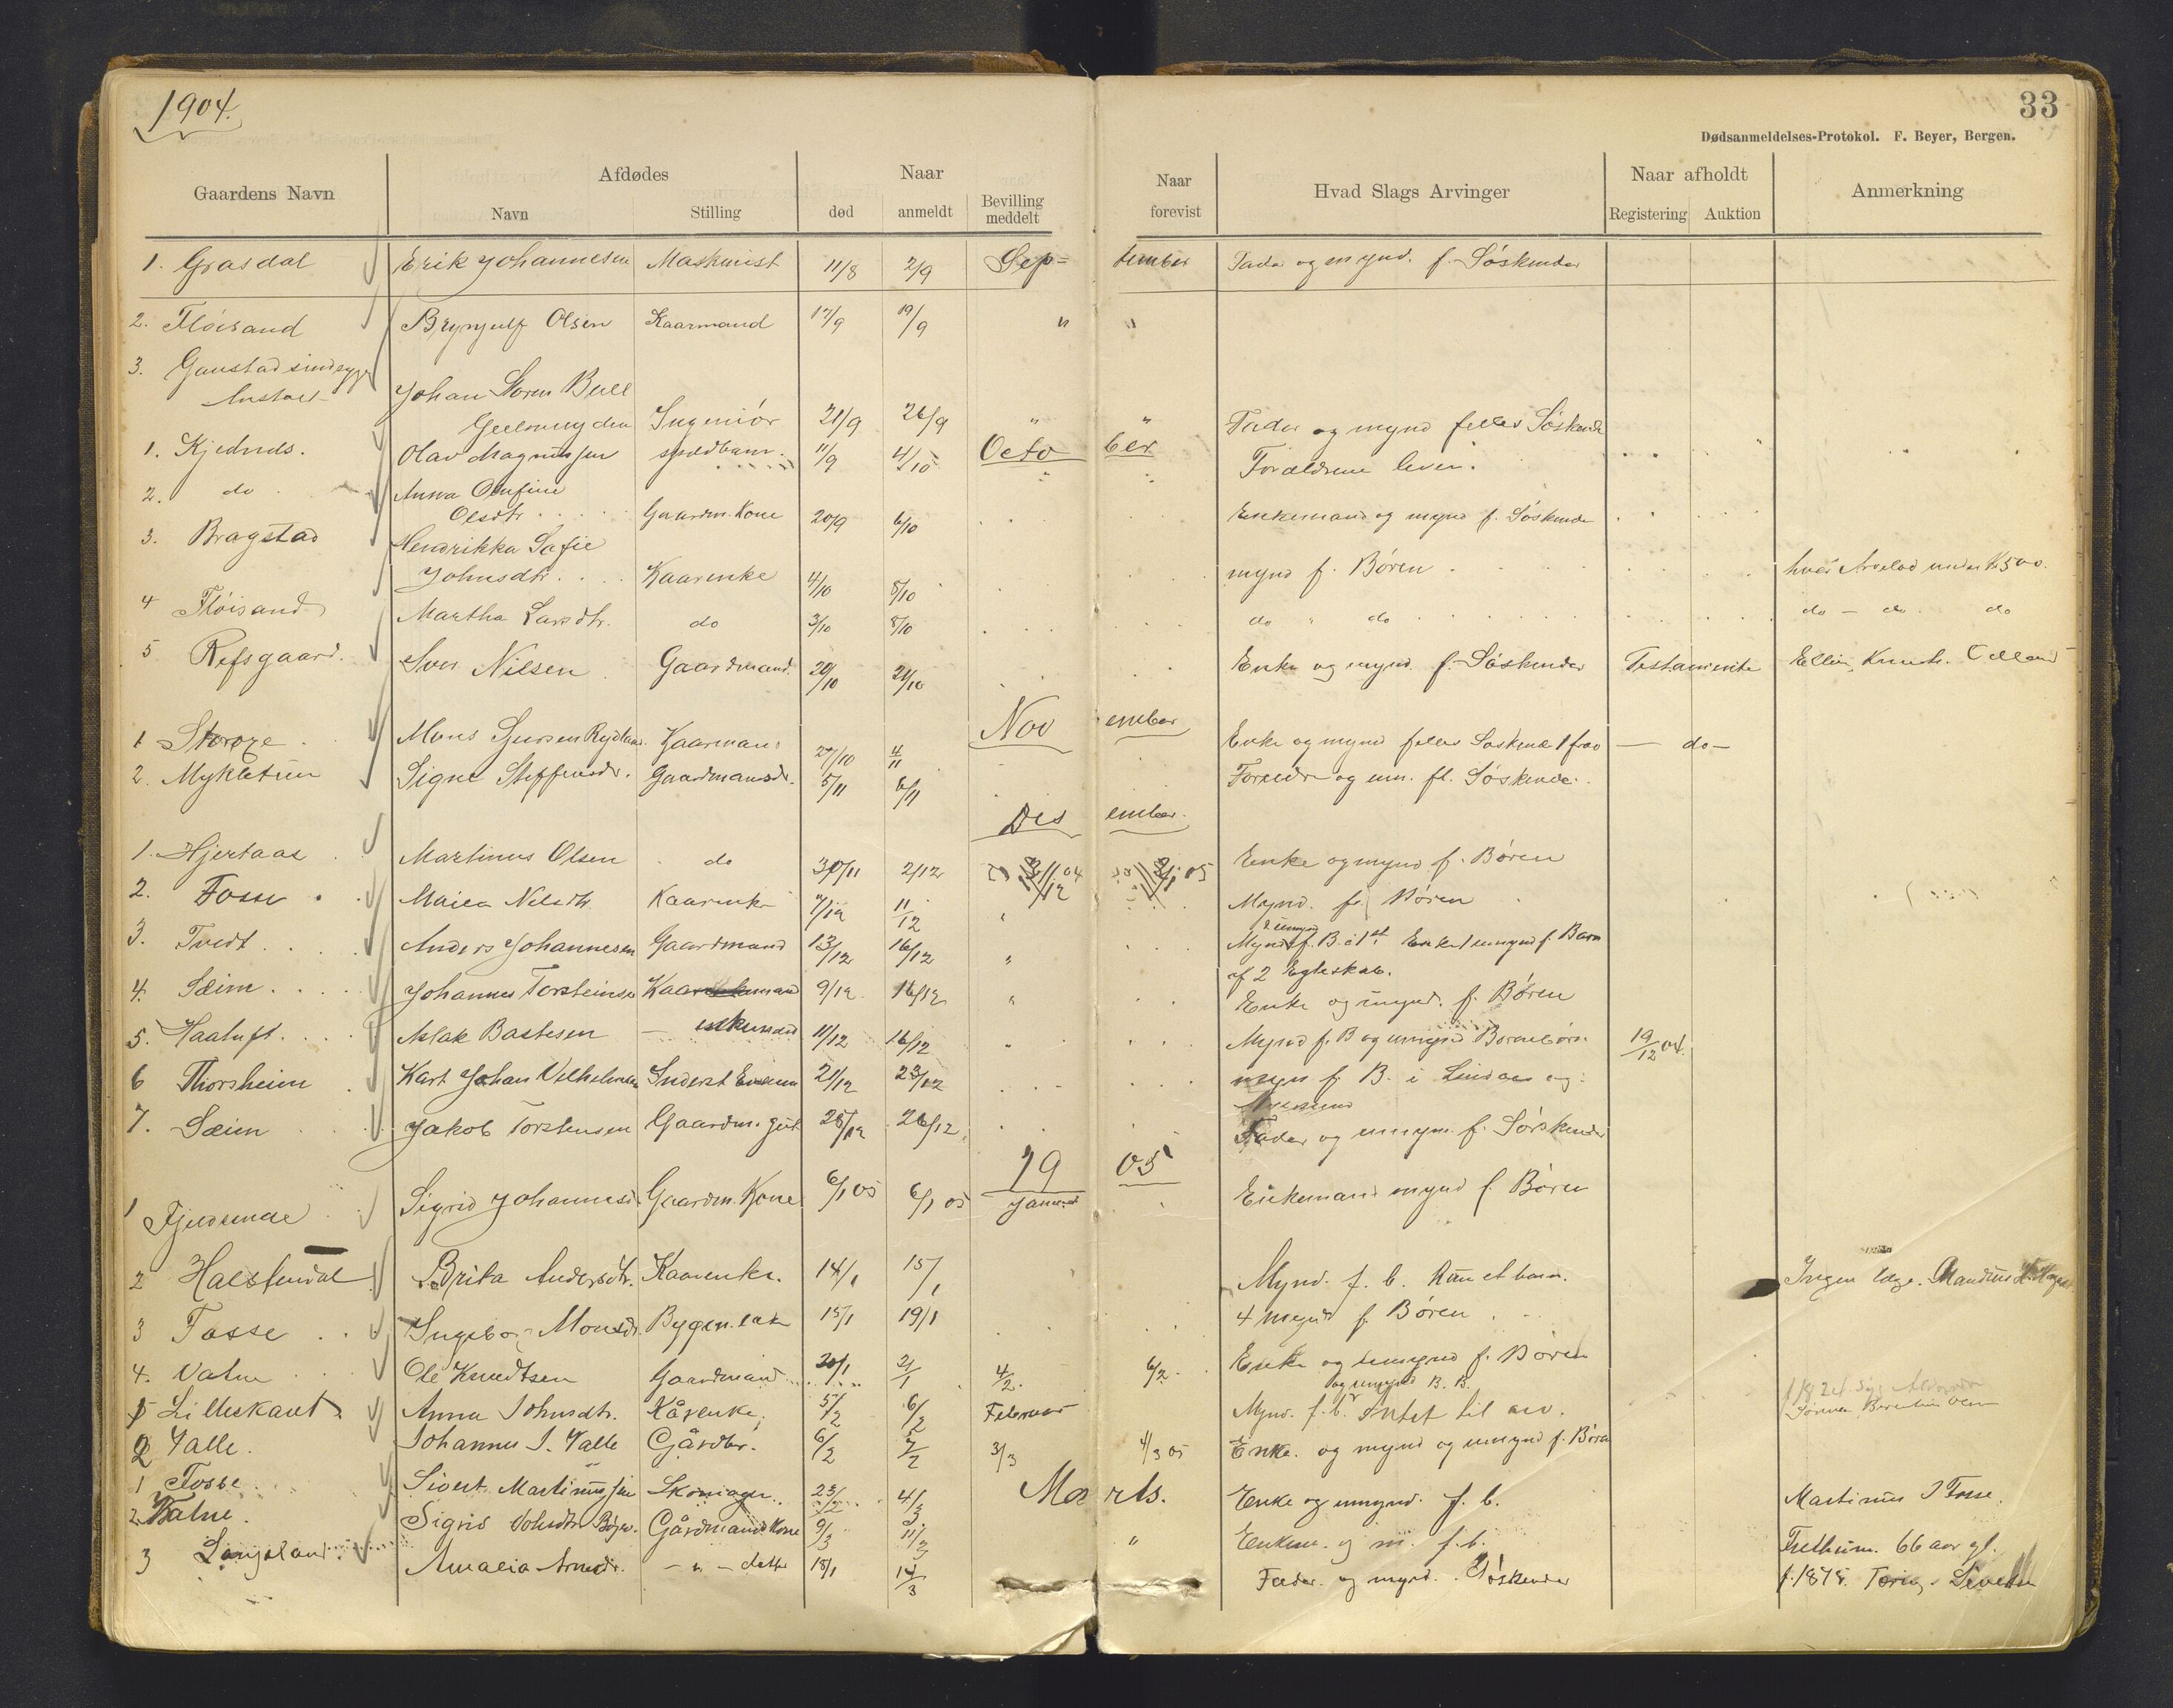 1904.
33
Dødsanmeldelses-Protokol. F. Beyer, Bergen.
Gaardens Navn
Afdødes
Navn
Stilling
Naar
død
anmeldt
Bevilling meddelt
Naar forevist
Hvad Slags Arvinger
Naar afholdt
Registering
Auktion
Anmerkning
1. Grasdal Erik Johannesen Maskinist 11/8 2/9 Sep= tember Fader og mynd. f. Søskender
2. Fløisand Brynjulf Olsen Kaarmand 17/9 19/9 " "
3. Gaustad sindsyge
Johan Storm Bull
Ingeniör 21/9 26/9 " " Fader og mynd felles Søskende
1. Kjednds. Olav Magnussen spædbarn. 11/9 4/10 Octo ber Forældrene lever.
2. do Anna
Olsdtr. Gaardm. Kone 20/9 6/10 Enkemand og mynd f. Søskende
3. Bragstad Hendrikka Sofie
Johnsdtr. Kaarenke 4/10 8/10 mynd f. Børen hver Arvelod under K500.
4 Fløisand Martha Larsdtr. do 3/10 8/10 do " do do - do. do
5 Refsgaard. Sven Nilsen Gaardmand. 20/10 21/10 Enke og mynd. f. Søskender Testamente
Nov ember
1 Storoze Mons Sjursen Kaarmand 29/10 4/11 Enke og mynd felles Søskende 1 fra - do -
2. Mykletun Signe Steffensdr. Gaardmansdr. 5/11 6/11 Foreldre og um. fl. Søskende.
Des ember.
1. Hjertaas Martinus Olsen do 30/11 2/12 Enke og mynd f. Børen
2. Fosse Nilsdtr Kaarenke 11/12 " Mynd. f. Børen
3. Tvedt. Anders Johannesen Gaardmand 13/12 16/12 " Enke 1 umynd f. Barn
af 2 Egteskab.
4. Sæim. Johannes Torsteinsen 9/12 16/12 " Enke og mynd. f. Børen
5. Haatuft. Aslak Bastesen - enkemand 11/12 16/12 " Mynd f. B og umynd Børnebørn 19/12 04.
6 Thorsheim Karl Johan Vilhelmsen Inderst 21/12 23/12 myn f. B. i Lindaas og
7. Sæim Jakob Torstensen Gaardm. gut 25/12 26/12 Fader og umyn. f. Sørskender
19 05
1 Sigrid Johannesd. Gaardm. Kone 6/1 05 6/1 05 Januar Enkemand mynd f. Børen
2 Halstendal Brita Andersdtr. Kaarenke. 14/1 15/1 Mynd. f. b. Kun et barn. Ingen
3 Fosse Ingebor Monsdr. 15/1 19/1 4 mynd f. Børen
4. Vatne Ole Knudtsen Gaardmand 20/1 21/1 4/2. 6/2. Enke og umynd f. Børen
og umynd B. B.
1 Lilleskaret Anna Johnsdtr. Kårenke. 5/2 6/2 Februar Mynd. f. b. Intet til arv.
2 Valle. Johannes J. Valle Gårdbr. 6/2 7/2 3/3 4/3 05 Enke. og mynd og umynd f. Børn
1 Fosse Sivert Martinussen Skomager 23/2 4/3 Ma rts. Enke og umynd. f. b. Martinus J Fosse.
2. Vatne. Sigrid Johsdtr Gårdmands Kone 9/3 11/3 " Enkem. og m. f. b. 66 aar gl.
3 Langeland Amalia - " - datter 18/1 14/3 Fader og mynd. Søskender f. 1878.